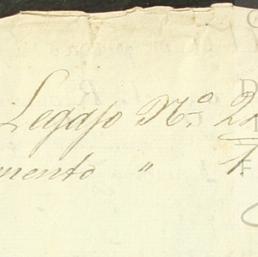 Legajo N.º 2
mento " 1.